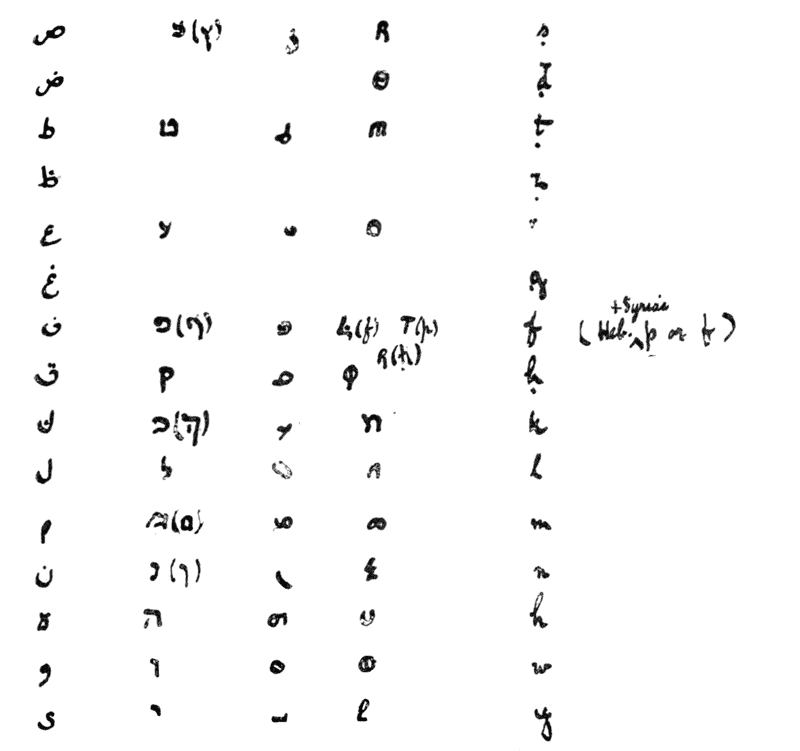 ص צ(ץ) ܨ ጸ ṣ
ض ፀ ḍ
ط ט ܛ ጠ ṭ
ظ ẓ
ع ע ܥ ዐ ʿ
غ g
ف פ(ף) ܦ ፈ(f) ፐ(p) f (Heb. + Syriac p or f)
ጰ(ṗ)
ق ק ܩ ቀ ḳ
ك כ(ך) ܟ ከ k
ل ל ܠ ለ l
م מ(ם) ܡ መ m
ن נ(ן) ܢ ነ n
ه ה ܗ ሀ h
و ו ܘ ወ w
ى י ܝ የ y